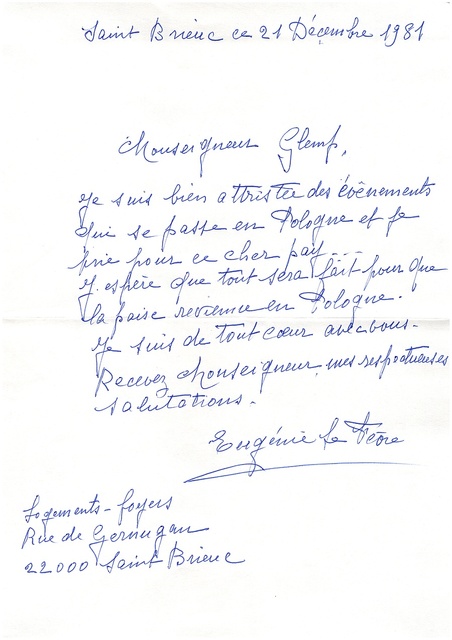 Saint Brieuc ce 21 Décembre 1981
Monseigneur Glemp,
Je suis bien attristée des évènements
qui se passe en Pologne et je
prie pour ce cher pays...
J. espère que tout sera fait pour que
la paise revienne en Pologne.
Je suis de tout cœur avec vous.
Recevez Monseigneur, mes respectueuses
salutations.
Eugénie Le
Logements-foyers
Rue de Gernugan
22000 Saint Brieuc